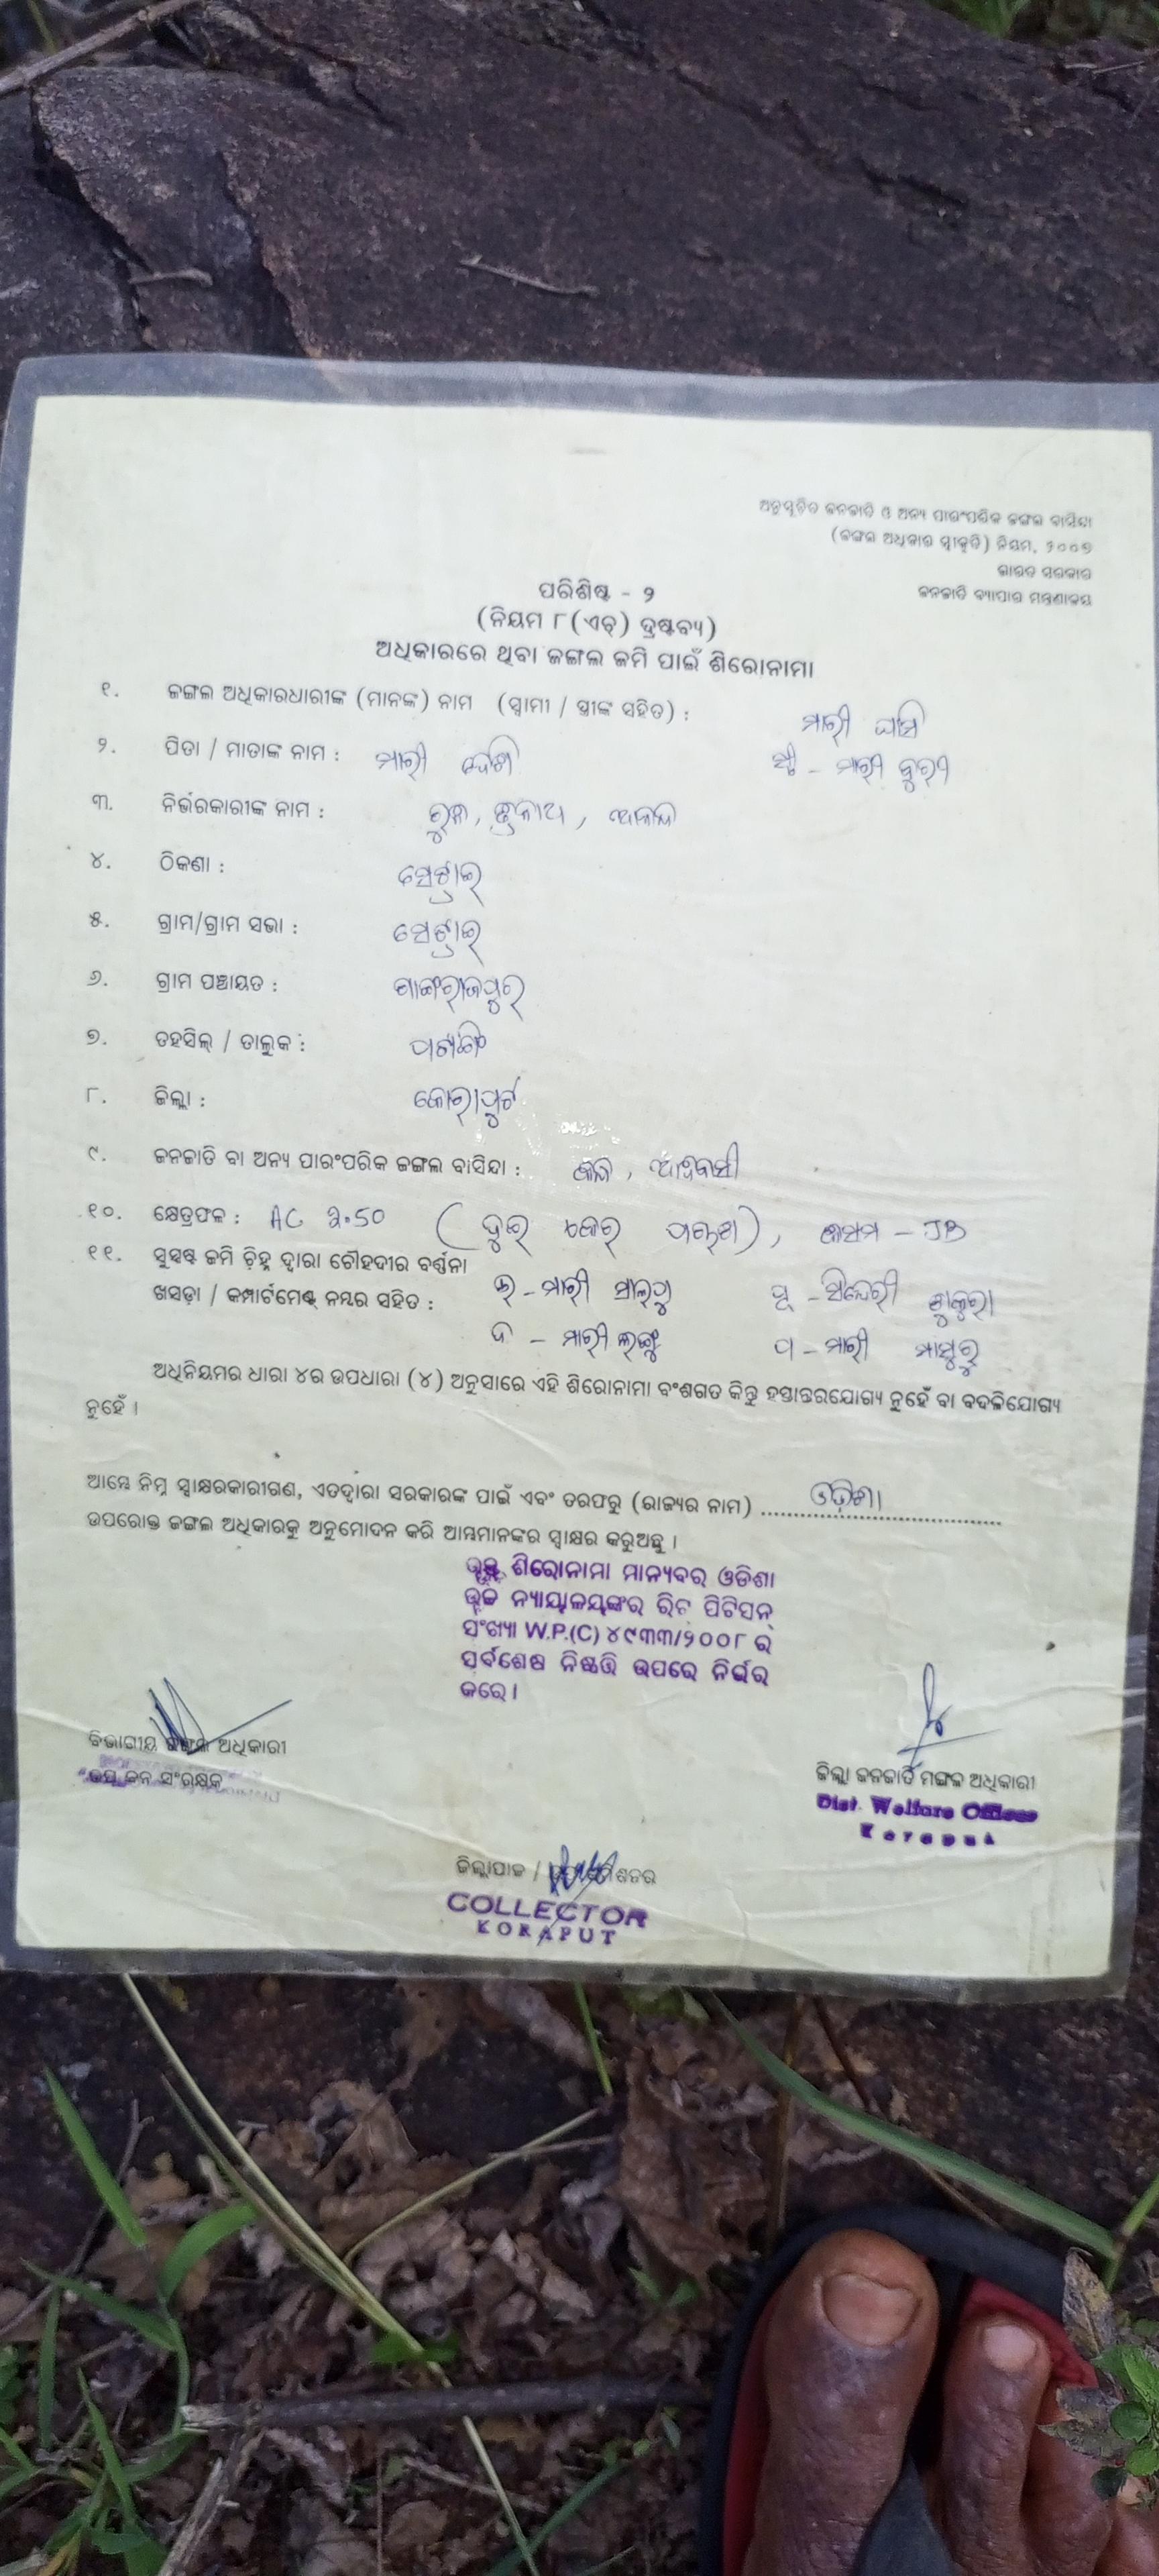 ଅନୁସୂଚିତ ଜନଜାତି ଓ ଅନ୍ୟ ପାରଂପରିକ ଜଙ୍ଗଲ ବାସିନ୍ଦା
(ଜଙ୍ଗଲ ଅଧିକାର ସ୍ୱୀକୃତି) ନିୟମ, ୨୦୦୭
ଭାରତ ସରକାର
ଜନଜାତି ବ୍ୟାପାର ମନ୍ତ୍ରଣାଳୟ
ପରିଶିଷ୍ଟ - ୨
(ନିୟମ ୮(ଏଚ୍) ଦ୍ରଷ୍ଟବ୍ୟ)
ଅଧିକାରରେ ଥିବା ଜଙ୍ଗଲ ଜମି ପାଇଁ ଶିରୋନାମା
୧. ଜଙ୍ଗଲ ଅଧିକାରଧାରୀଙ୍କ (ମାନଙ୍କ) ନାମ (ସ୍ୱାମୀ / ସ୍ତ୍ରୀଙ୍କ ସହିତ) : ମାରୀ ଘାସି
୨. ପିତା / ମାତାଙ୍କ ନାମ : ମାରୀ ସ୍ତ୍ରୀ - ମାରୀ ବୁଦୁରୀ
୩. ନିର୍ଭରକାରୀଙ୍କ ନାମ :
୪. ଠିକଣା :
୫. ଗ୍ରାମ/ଗ୍ରାମ ସଭା :
୬. ଗ୍ରାମ ପଞ୍ଚାୟତ :
୭. ତହସିଲ୍ / ତାଲୁକ : ପଟାଙ୍ଗି
୮. ଜିଲ୍ଲା : କୋରାପୁଟ
୯. ଜନଜାତି ବା ଅନ୍ୟ ପାରଂପରିକ ଜଙ୍ଗଲ ବାସିନ୍ଦା : ଆଦିବାସୀ
୧୦. କ୍ଷେତ୍ରଫଳ : AC 2.50 (ଦୁଇ ଏକର ପଚାଶ), କିସମ - JB
୧୧. ସୁସ୍ପଷ୍ଟ ଜମି ଚିହ୍ନ ଦ୍ୱାରା ଚୌହଦୀର ବର୍ଣ୍ଣନା
ଖସଡ଼ା / କମ୍ପାର୍ଟମେଣ୍ଟ୍ ନମ୍ବର ସହିତ : ଉ - ମାରୀ ପୂ - ସିନ୍ଦେରୀ
ଦ - ମାରୀ ପ - ମାରୀ
ଅଧିନିୟମର ଧାରା ୪ର ଉପଧାରା (୪) ଅନୁସାରେ ଏହି ଶିରୋନାମା ବଂଶଗତ କିନ୍ତୁ ହସ୍ତାନ୍ତରଯୋଗ୍ୟ ନୁହେଁ ବା ବଦଳିଯୋଗ୍ୟ
ନୁହେଁ ।
ଆମ୍ଭେ ନିମ୍ନ ସ୍ୱାକ୍ଷରକାରୀଗଣ, ଏତଦ୍ୱାରା ସରକାରଙ୍କ ପାଇଁ ଏବଂ ତରଫରୁ (ରାଜ୍ୟର ନାମ) ଓଡ଼ିଶା
ଉପରୋକ୍ତ ଜଙ୍ଗଲ ଅଧିକାରକୁ ଅନୁମୋଦନ କରି ଆମ୍ଭମାନଙ୍କର ସ୍ୱାକ୍ଷର କରୁଅଛୁ ।
ଉକ୍ତ ଶିରୋନାମା ମାନ୍ୟବର ଓଡିଶା
ଉଚ୍ଚ ନ୍ୟାୟାଳୟଙ୍କର ରିଟ ପିଟିସନ୍
ସଂଖ୍ୟା W.P.(C) ୪୯୩୩/୨୦୦୮ ର
ସର୍ବଶେଷ ନିଷ୍ପତ୍ତି ଉପରେ ନିର୍ଭର
କରେ ।
ବିଭାଗୀୟ ଜଙ୍ଗଲ ଅଧିକାରୀ
ଉପ ବନ ସଂରକ୍ଷକ
ଜିଲ୍ଲା ଜନଜାତି ମଙ୍ଗଳ ଅଧିକାରୀ
Dist. Welfare Officer
Koraput
ଜିଲ୍ଲାପାଳ /
COLLECTOR
KORAPUT